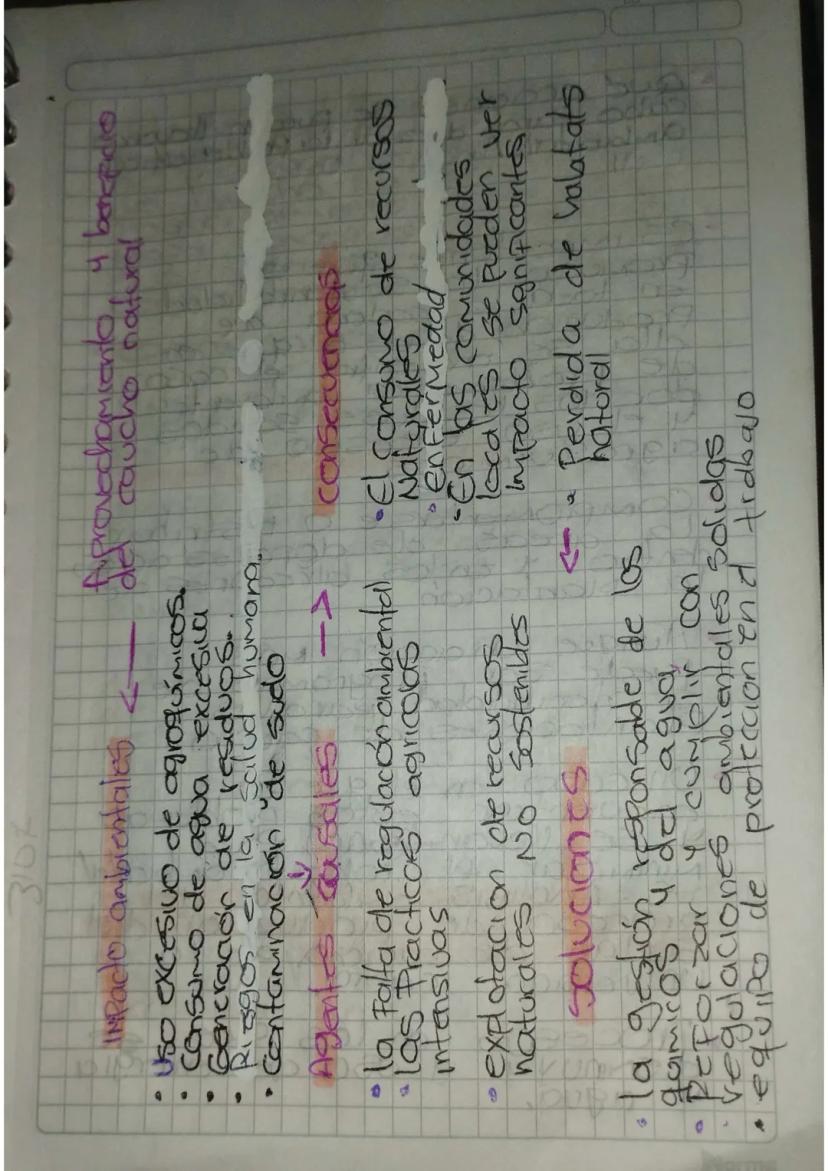 Aprovechamiento y beneficio
del caucho natural
Impacto ambientales ←
• Uso excesivo de agroquímicos.
• Consumo de agua excesiva
• Generación de residuos..
• Riesgos en la salud humana..
• Contaminación de suelo
Agentes causales →
• la Falta de regulación ambiental
• las Practicas agricolas
intensivas
• explotacion de recursos
naturales NO Sostenibles
consecuencias
• El consumo de recursos
Naturales
• enfermedad
• En las comunidades
locales se pueden ver
impacto significantes
← • Perdida de habitats
natural
soluciones
• la gestión responsable de los
químicos y del agua
• Reforzar y cumplir con
regulaciones ambientales solidas
• equipo de proteccion en el trabajo